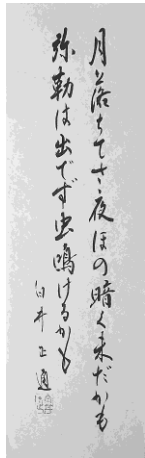 月落ちてさ夜ほの暗く未だかも
弥勒は出でず虫鳴けるかも
臼井正適